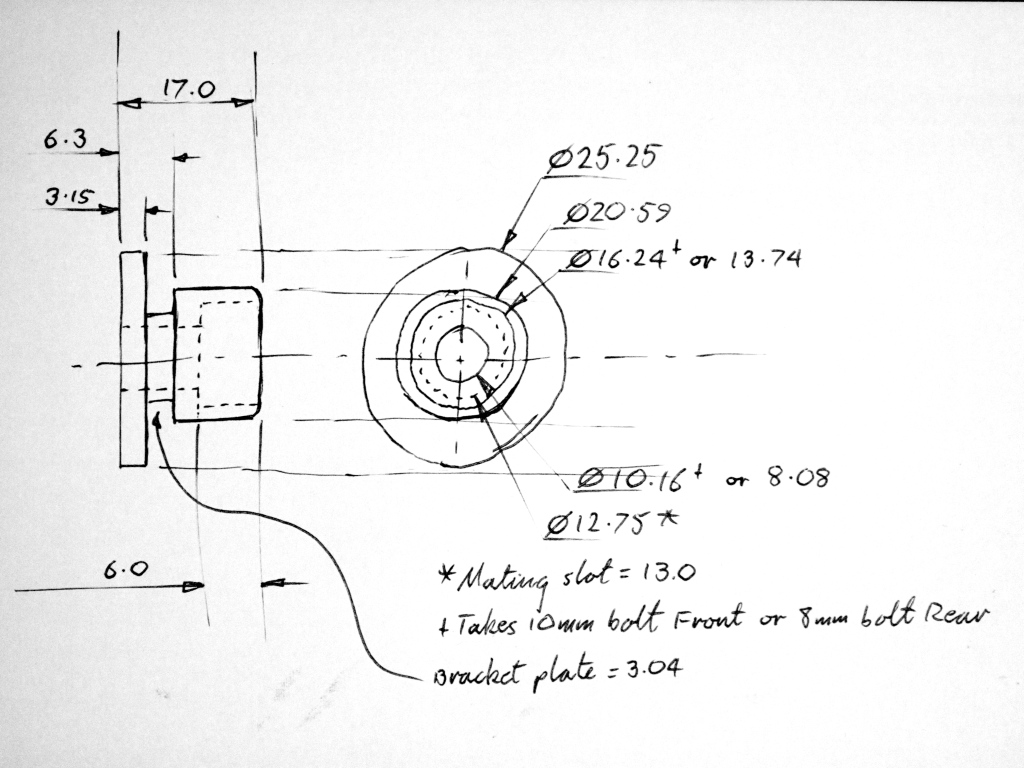 17.0
6.3
3.15
Ø25.25
Ø20.59
Ø16.24† or 13.74
Ø10.16† or 8.08
Ø12.75*
6.0
* Mating slot = 13.0
† Takes 10mm bolt Front or 8mm bolt Rear
Bracket plate = 3.04